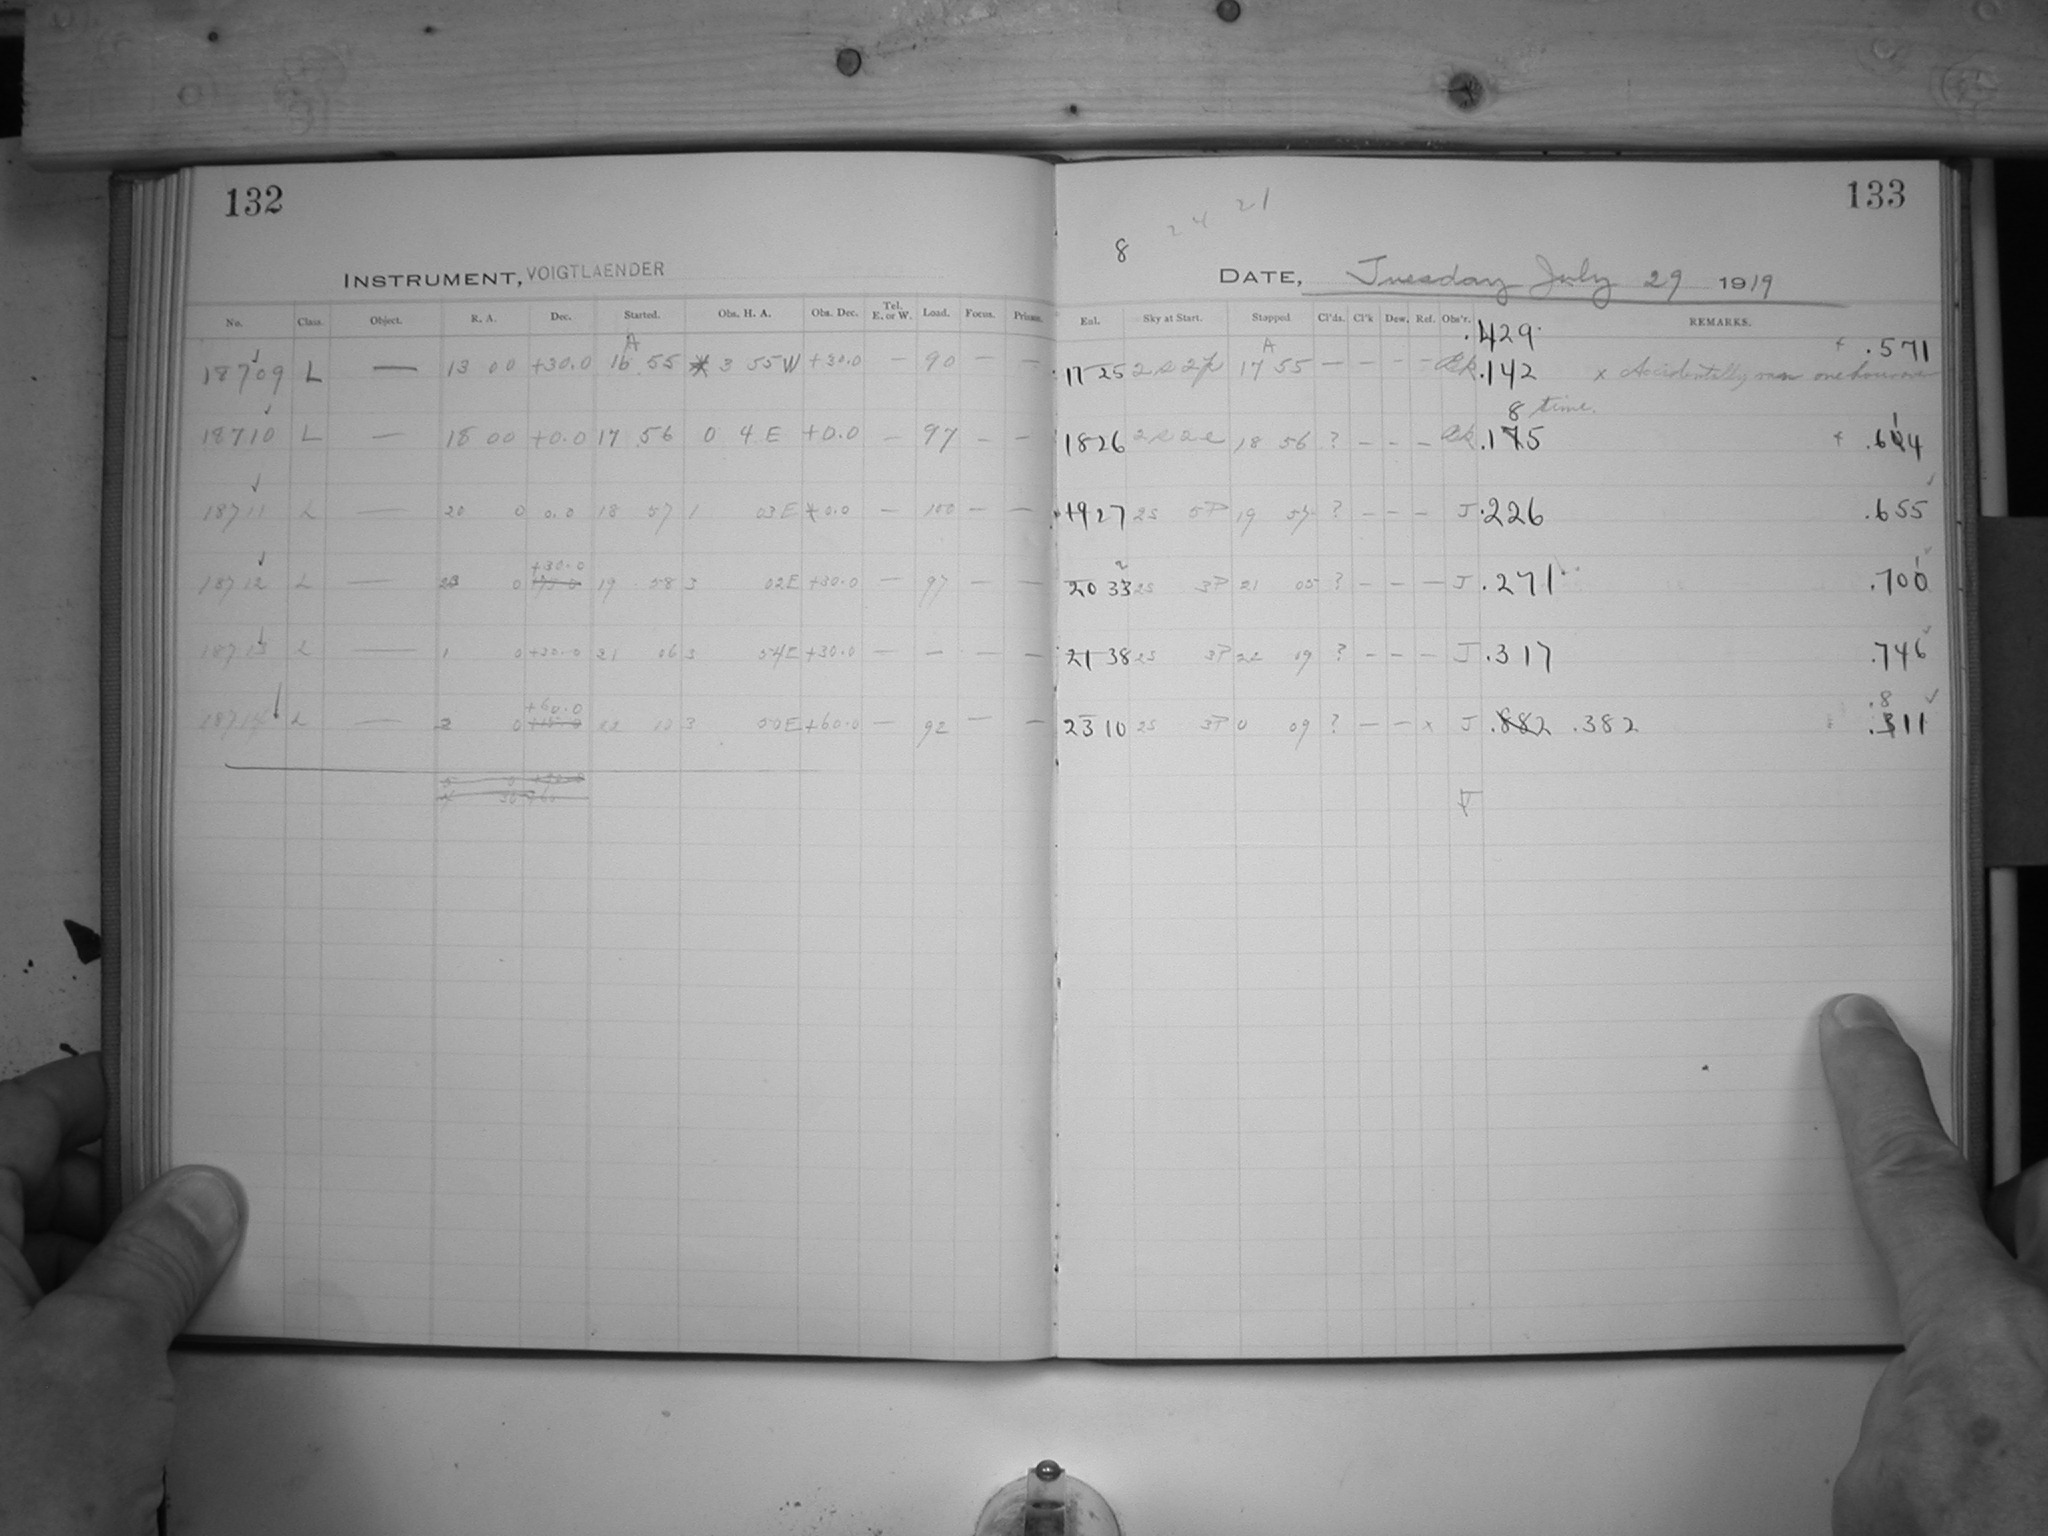 132
INSTRUMENT, VOIGTLAENDER
No. Class. Object. R. A. Dec. Started. Obs. H. A. Obs. Dec. Tel. E. or W. Load. Focus. Prisms.
18709 L — 13 00 +30.0 A 16 55 3 55W +30.0 — 90 — —
18710 L — 18 00 +0.0 17 56 0 4 E +0.0 — 97 — —
18711 L — 20 0 0.0 18 57 1 03E +0.0 — 100 — —
+30.0
18712 L — 23 0 19 58 3 02E +30.0 — 97 — —
18713 L — 1 0 +30.0 21 06 3 54E +30.0 — — — —
+60.0
18714 L — 2 0 22 10 3 50E +60.0 — 92 — —
133
24 21
8
DATE, Tuesday July 29 1919
Enl. Sky at Start. Stopped Cl'ds. Cl'k Dew. Ref. Obs'r. REMARKS.
.429
.571
17 25 2s 2p A 17 55 — — — — .142 x Accidentally ran one hour over
8 time.
18 26 2s 2e 18 56 ? — — — .175 .614
19 27 2S 5P 19 57 ? — — — J .226 .655
20 33 2S 3P 21 05 ? — — — J .271 .700
21 38 2S 3P 22 09 ? — — — J .317 .746
.8
23 10 2S 3P 0 09 ? — — x J .882 .382 .311